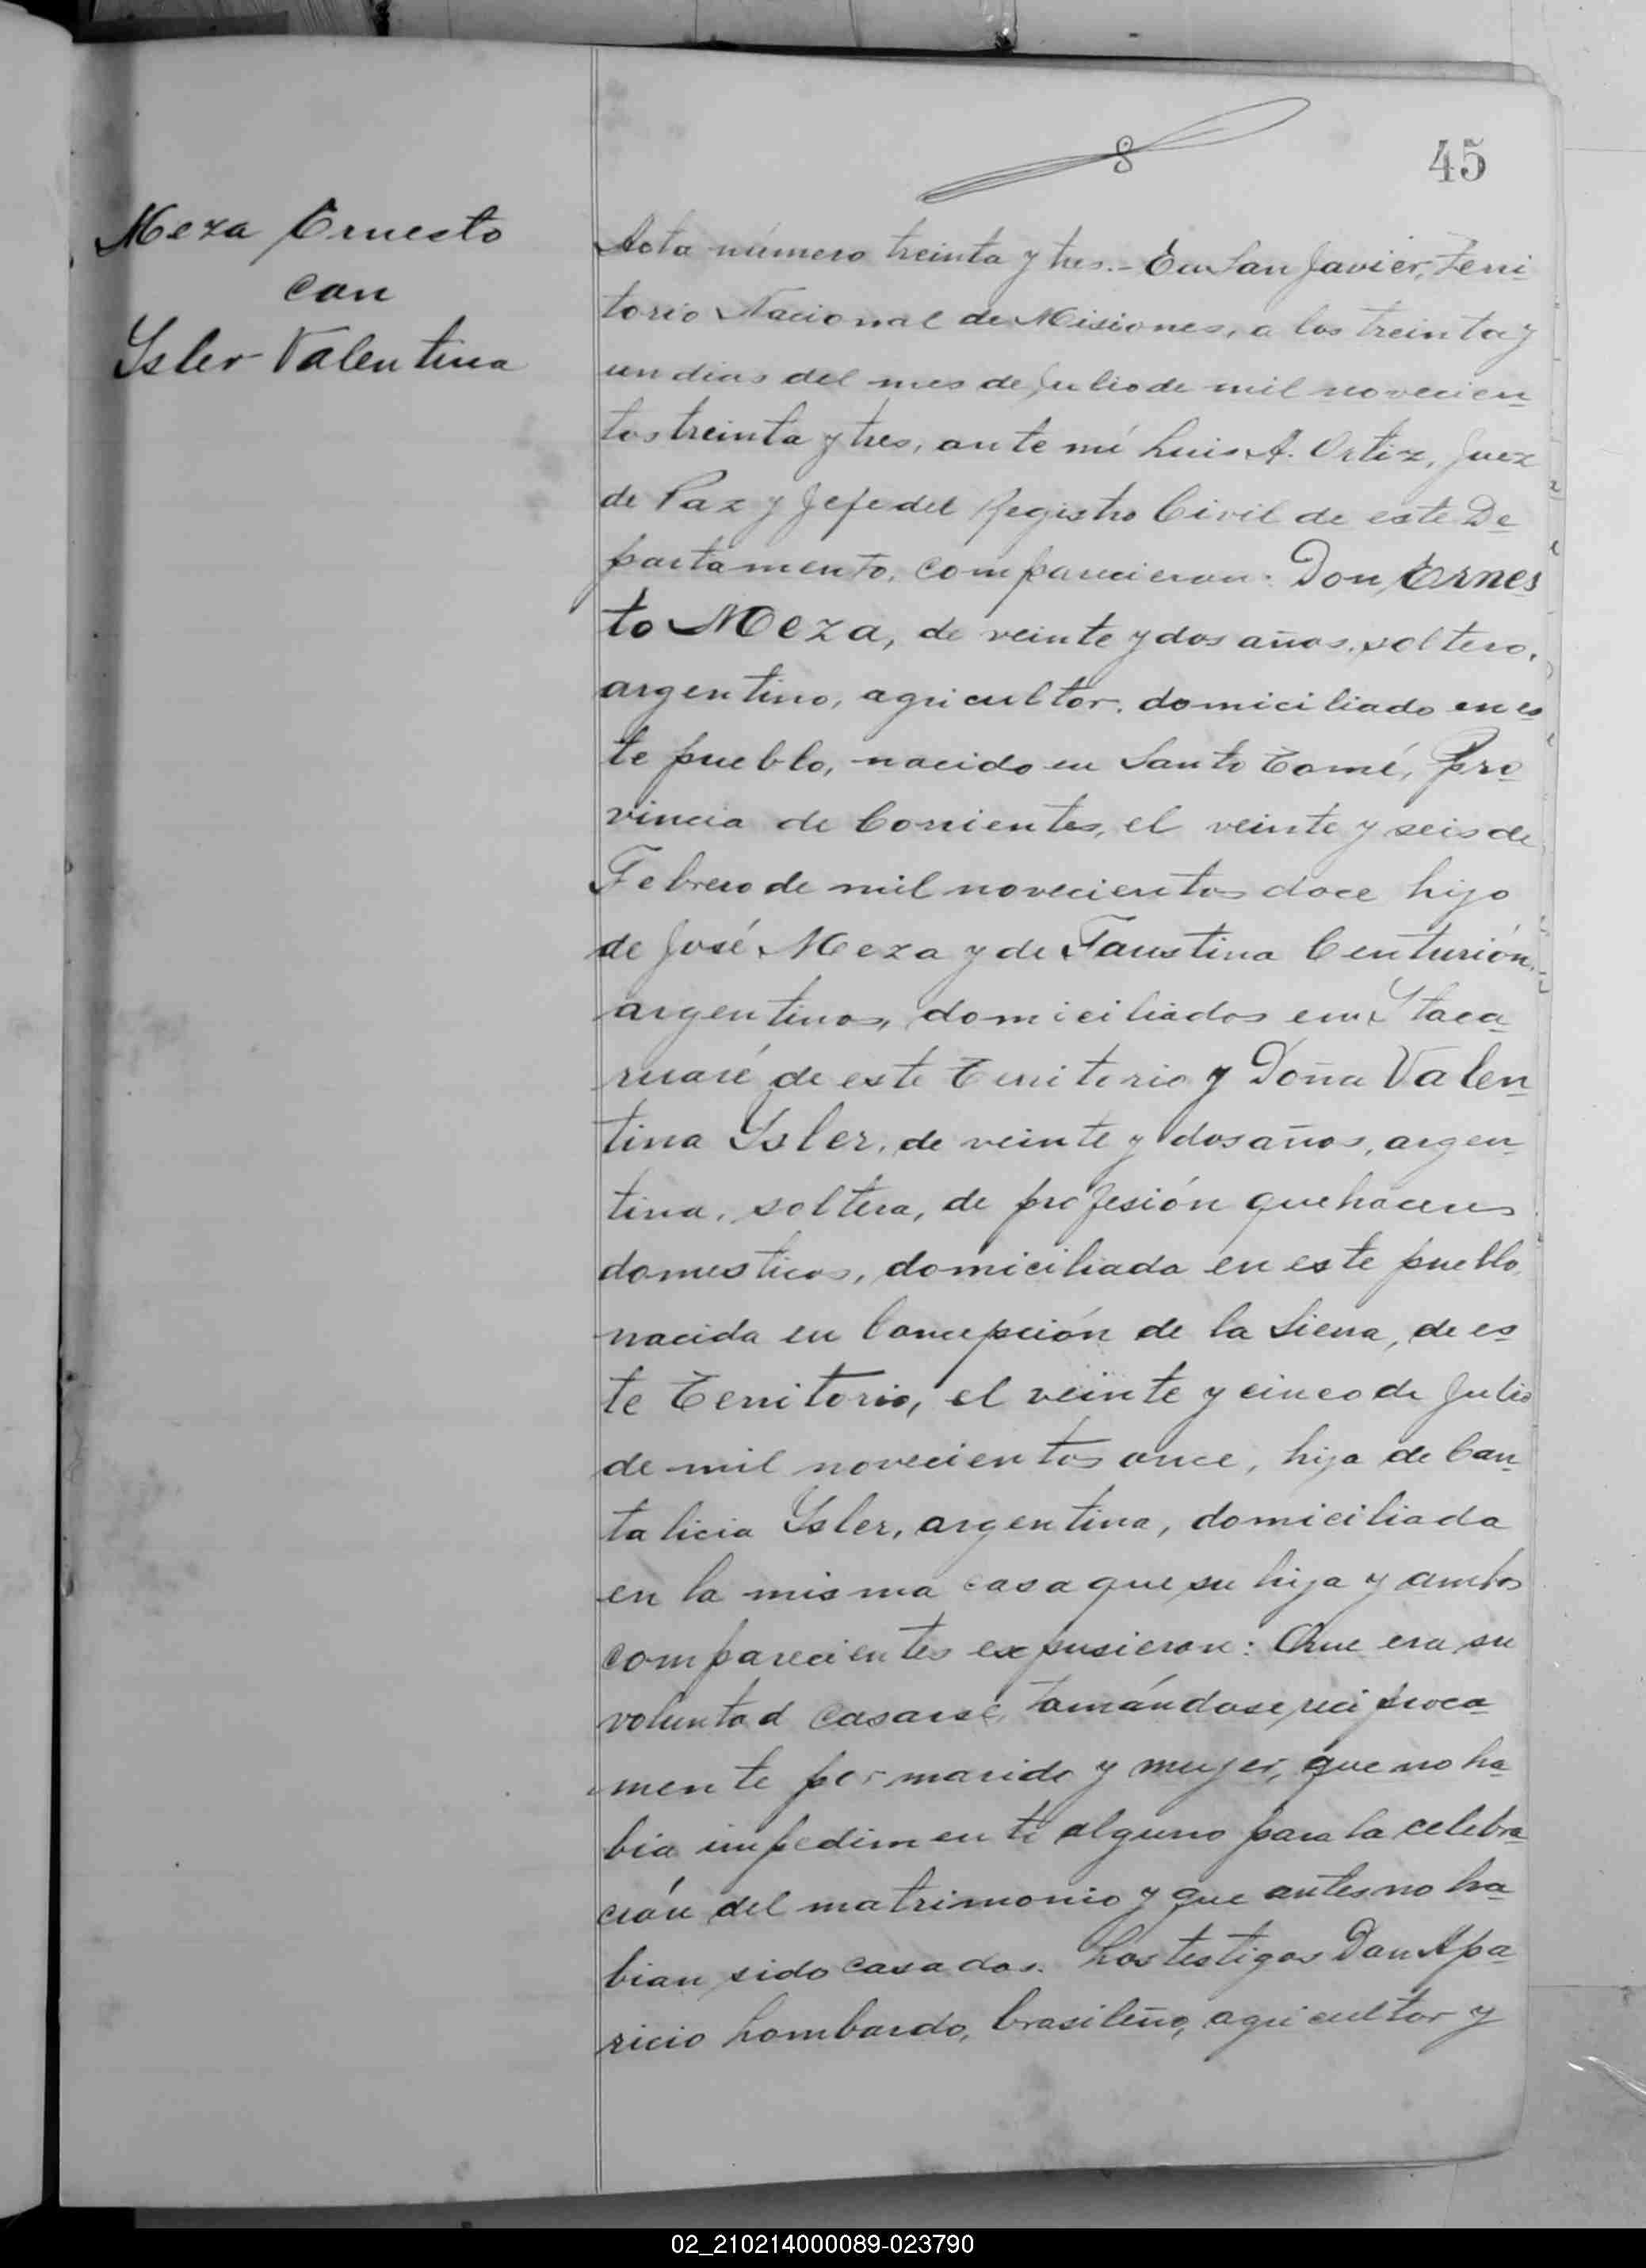 45
Meza Ernesto
con
Ysler Valentina
Acta número treinta y tres.- En San Javier, Terri
torio Nacional de Misiones, a los treinta y
un dias del mes de Julio de mil novecien
tos treinta y tres, ante mí Luis A. Ortiz, Juez
de Paz y Jefe del Registro Civil de este De
partamento, comparecieron: Don Ernes
to Meza, de veinte y dos años, soltero,
argentino, agricultor, domiciliado en es
te pueblo, nacido en Santo Tomé, Pro
vincia de Corrientes, el veinte y seis de
Febrero de mil novecientos doce hijo
de José Meza y de Faustina Centurión,
argentinos, domiciliados en Ytaca
ruaré de este Territorio y Doña Valen
tina Ysler, de veinte y dos años, argen
tina, soltera, de profesión quehaceres
domesticos, domiciliada en este pueblo,
nacida en Concepción de la Sierra, de es
te Territorio, el veinte y cinco de Julio
de mil novecientos once, hija de Can
talicia Ysler, argentina, domiciliada
en la misma casa que su hija y ambos
comparecientes expusieron: Que era su
voluntad casarse, tomándose reciproca
mente por marido y mujer, que no ha
bia impedimento alguno para la celebra
ción del matrimonio y que antes no ha
bian sido casados. Los testigos Don Apa
ricio Lombardo, brasileño, agricultor y
02_210214000089-023790